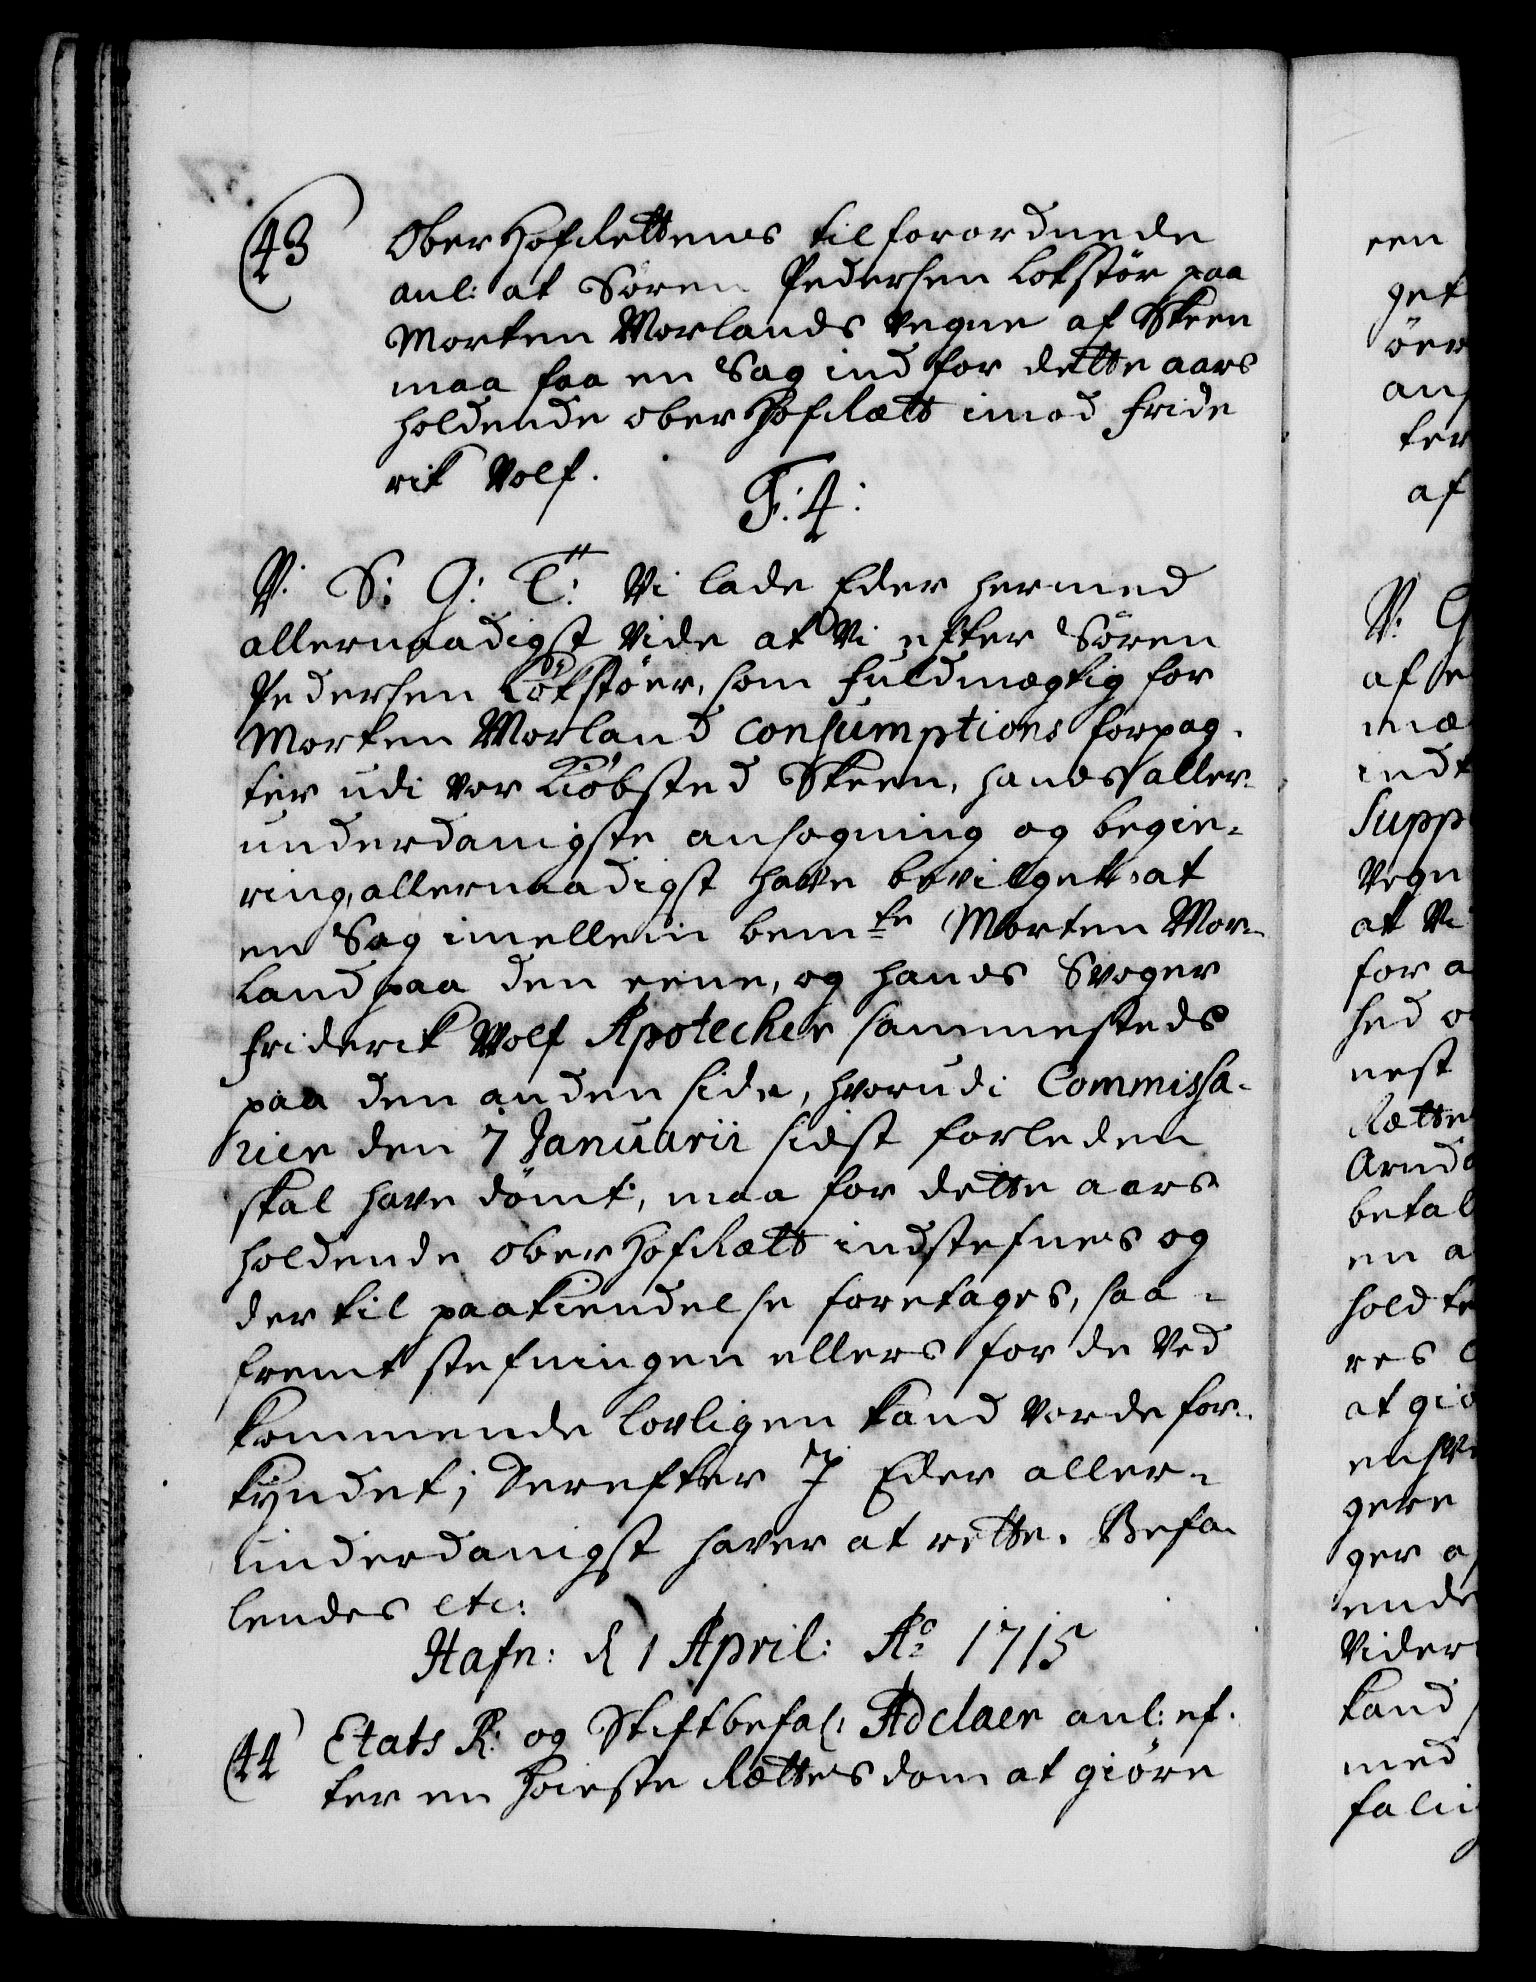 43
Ober Hof Rettens tilforordnede
anl: at Sören Pedersen Lokstör paa
Morten Morlands vegne af Skeen
maa faa en Sag ind for dette aars
holdende ober Hof Rætt imod Fride
rik Wolf.
F: 4:
V: S: G: T: Vi lade Eder hermed
allernaadigst vide at Vi efter Sören
Pedersen Lökstöer, som fuldmægtig for
Morten Morland Consumptions forpag-
ter udi vor Kiöbsted Skeen, hands aller-
underdanigste ansögning og begie-
ring, allernaadigst have bevilget, at
en Sag imellem bemte Morten Mor-
land paa den eene, og hands Svoger
Friderik Wolf Apotecher sammesteds
paa den anden side, hvorudi Commissa-
rier den 7 Januarii sidst forleden
skal have dömt, maa for dette aars
holdende ober Hof Rætt indstefnes og
der til paakiendelse foretages, saa-
fremt stefningen ellers for de Ved
kommende lovligen kand vorde for-
kyndet; Derefter I Eder aller-
underdanigst haver at rette. Befa-
lendes etc:
Hafn: d 1 April: Ao 1715
44
Etats R: og Stiftbefal: Adelaer anl: ef-
ter en Höieste Rettes dom at giöre
een
get
öer
ter
af
V: G
af
indt
Supp
Vegn
at Vi
for a
hed
nest
Rætte
betal
en a
hold
res
at giö
gere
ger
ende
Vider
kand
med